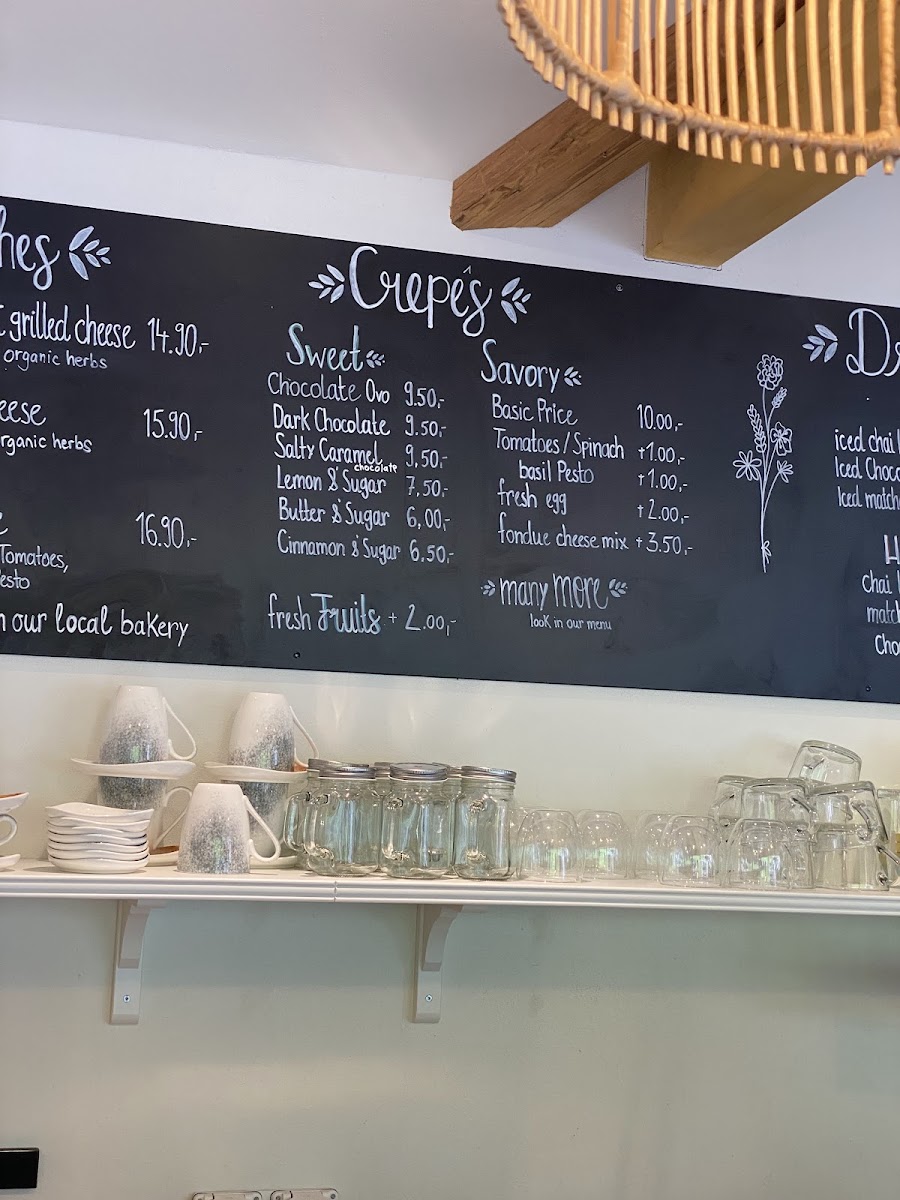 grilled cheese 14.90,-
organic herbs
15.90,-
organic herbs
16.90,-
Tomatoes,
our local bakery
Crepês
Sweet
Chocolate Ovo 9.50,-
Dark Chocolate 9.50,-
Salty Caramel 9,50,-
chocolate
Lemon & Sugar 7,50,-
Butter & Sugar 6,00,-
Cinnamon & Sugar 6,50,-
fresh Fruits + 2.00,-
Savory
Basic Price 10.00,-
Tomatoes / Spinach +1.00,-
basil Pesto +1.00,-
fresh egg +2.00,-
fondue cheese mix +3.50,-
many more
look in our menu
iced chai
Iced
Iced
chai